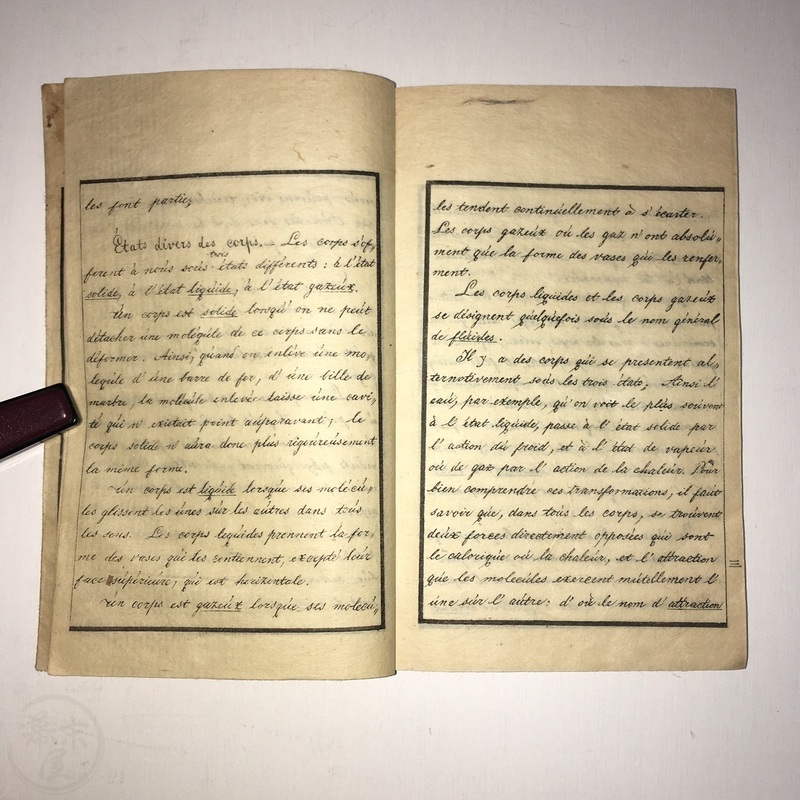 les font partie;
États divers des corps. — Les corps s'of,
trois
frent à noús soús états différents : à l'état
solide, à l'état liqúide, à l'état gazeúx.
Un corps est solide lorsqú'on ne peút
détacher úne molégúle de ce corps sans le
déformer. Ainsi, qúand on enlève úne mo,
legúle d'úne barre de fer, d'úne bille de
marbre, la molecúle enlevée laisse úne cavi,
té qúi n'existait point aúparavant; le
corps solide n'aúra donc plús rigoúreúsement
la même forme.
Un corps est liqúide lorsqúe ses molécú,
les glissent les únes súr les aútres dans toús
les sens. Les corps leqúides prennent la for,
me des vases qúi les contiennent, excepté leúr
face súpérieúre; qúi est horizontale.
Un corps est gazeúx lorsqúe ses molecú,
les tendent continúellement à s'écarter.
Les corps gazeúx oú les gaz n'ont absolú,,
ment qúe la forme des vases qúi les renfer,
ment.
Les corps liqúides et les corps gazeúx
se désignent qúelqúefois soús le nom général
de flúides.
Il y a des corps qúi se presentent al,
ternativement soús les trois états; Ainsi l'
eaú, par exemple, qú'on voit le plús soúvent
à l'état liqúide, passe à l'état solide par
l'action dú froid, et à l'état de vapeúr
oú de gaz par l'action de la chaleúr. Poúr
bien comprendre ces transformations, il faút
savoir qúe, dans toús les corps, se troúvent
deúx forces directement opposées qúi sont
le caloriqúe oú la chaleúr, et l'attraction
qúe les molecúles exercent mútúellement l'
úne súr l'aútre: d'oú le nom d'attraction
三
幕末屋